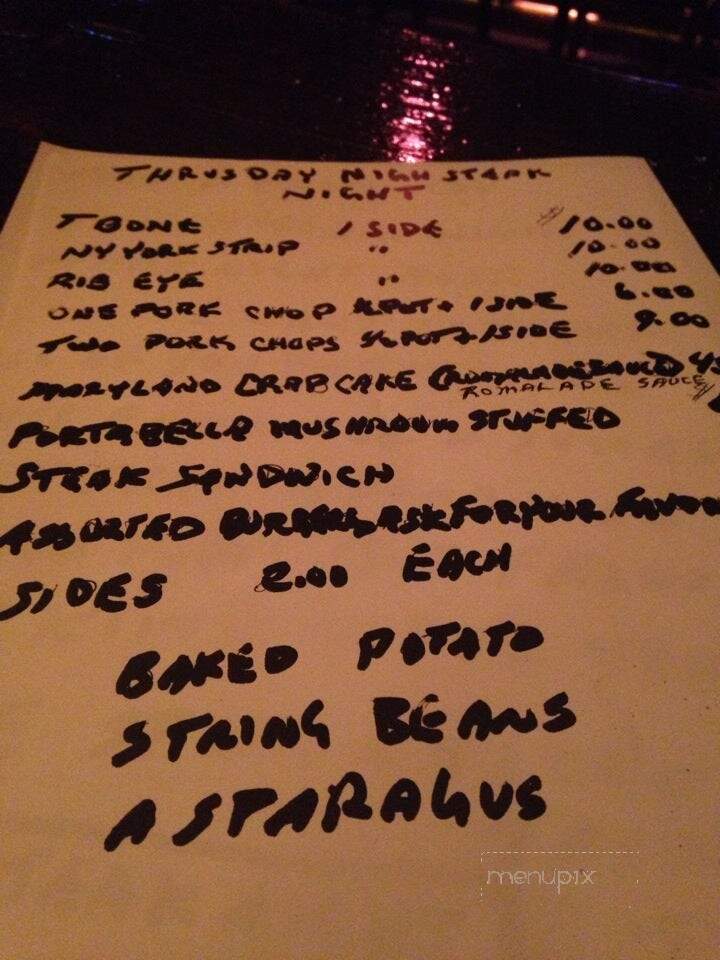 THRUSDAY NIGH STEAK
NIGHT
T BONE 1 SIDE 10.00
NY YORK STRIP " 10.00
RIB EYE " 10.00
ONE PORK CHOP + 1 SIDE 6.00
TWO PORK CHOPS + 1 SIDE 9.00
MARYLAND CRAB CAKE
ROMALADE SAUCE
PORTABELLA MUSHROOM STUFFED
STEAK SANDWICH
ASSORTED BURGERS ASK FOR YOUR FAVOR
SIDES 2.00 EACH
BAKED POTATO
STRING BEANS
ASPARAGUS
menupix